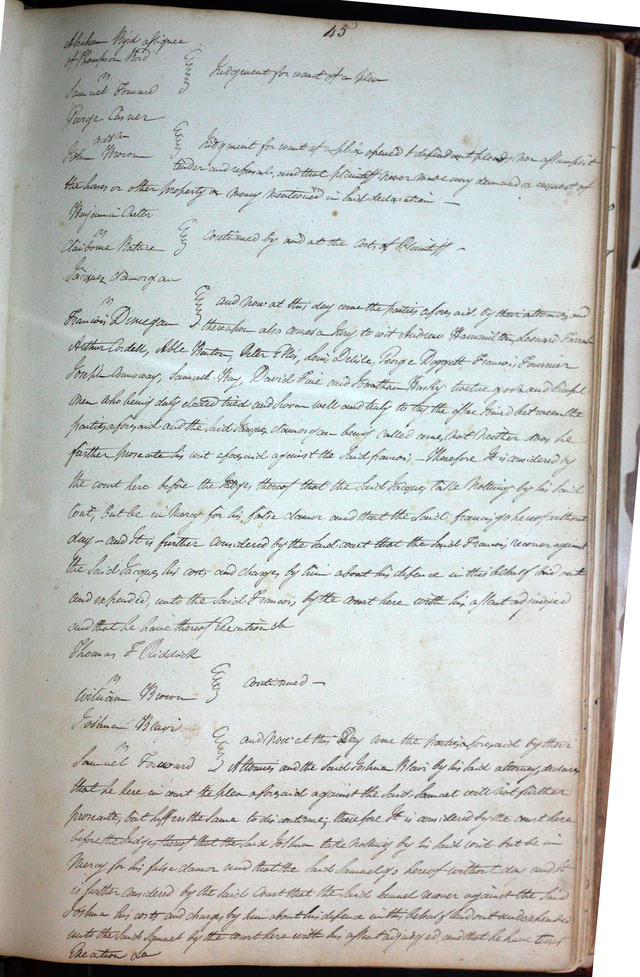 45
Abraham Byrd assignee
of Thompson Bird
vs
Samuel Foward
Judgment for want of a plea
George Casner
vs
John Brown
Judgment for want of a plea opened & defendant pleads non assumpsit
tender and refusal, and that plaintiff never made any demand or request of
the horses or other property or money mentioned in said declaration —
Benjamin Carter
vs
Claiborne
Continued by and at the costs of Plaintiff —
Jacques Clamorgan
vs
Francis Dunegan
and now at this day come the parties aforesaid by their attornies, and
thereupon also comes a Jury to wit Andrew Hammilton, Leonard Farrah
Arthur Cordell, Able Peter Ellis, Louis Delile, George Doggett Francis Fournier
Joseph Samuel David and Jonathan twelve good and lawful
men who being duly elected tried and sworn well and truly to try the issue Joined between the
parties aforesaid and the said Jacques Clamorgan being called comes not neither does he
further prosecute his writ aforesaid against the said francis, — Therefore It is considered by
the court here before the Judges thereof that the said Jacques take nothing by his said
writ, but be in Mercy for his false clamor and that the said francis go hereof without
day — and it is further considered by the said court that the said Francis recover against
the said Jacques his costs and charges by him about his defence in this behalf laid out
and expended, unto the said Francis, by the court here with his assent adjudged
and that he have thereof Execution &c
Thomas F Riddick
vs
William Brown
continued —
Joshua Blair
vs
Samuel Foward
and now at this Day come the parties aforesaid by their
Attornies and the said Joshua Blair by his said attorney, declares
that he here in court the plea aforesaid against the said Samuel will not further
prosecute, but suffers the same to discontinue; therefore It is considered by the court here
before the Judges thereof that the said Joshua take nothing by his said writ but be in
Mercy for his false clamor and that the said Samuel go hereof without day and it
is further considered by the said Court that the said Samuel recover against the said
Joshua his costs and charges by him about his defence in this behalf laid out and expended
unto the said Samuel by the court here with his assent adjudged and that he have thereof
Execution &c